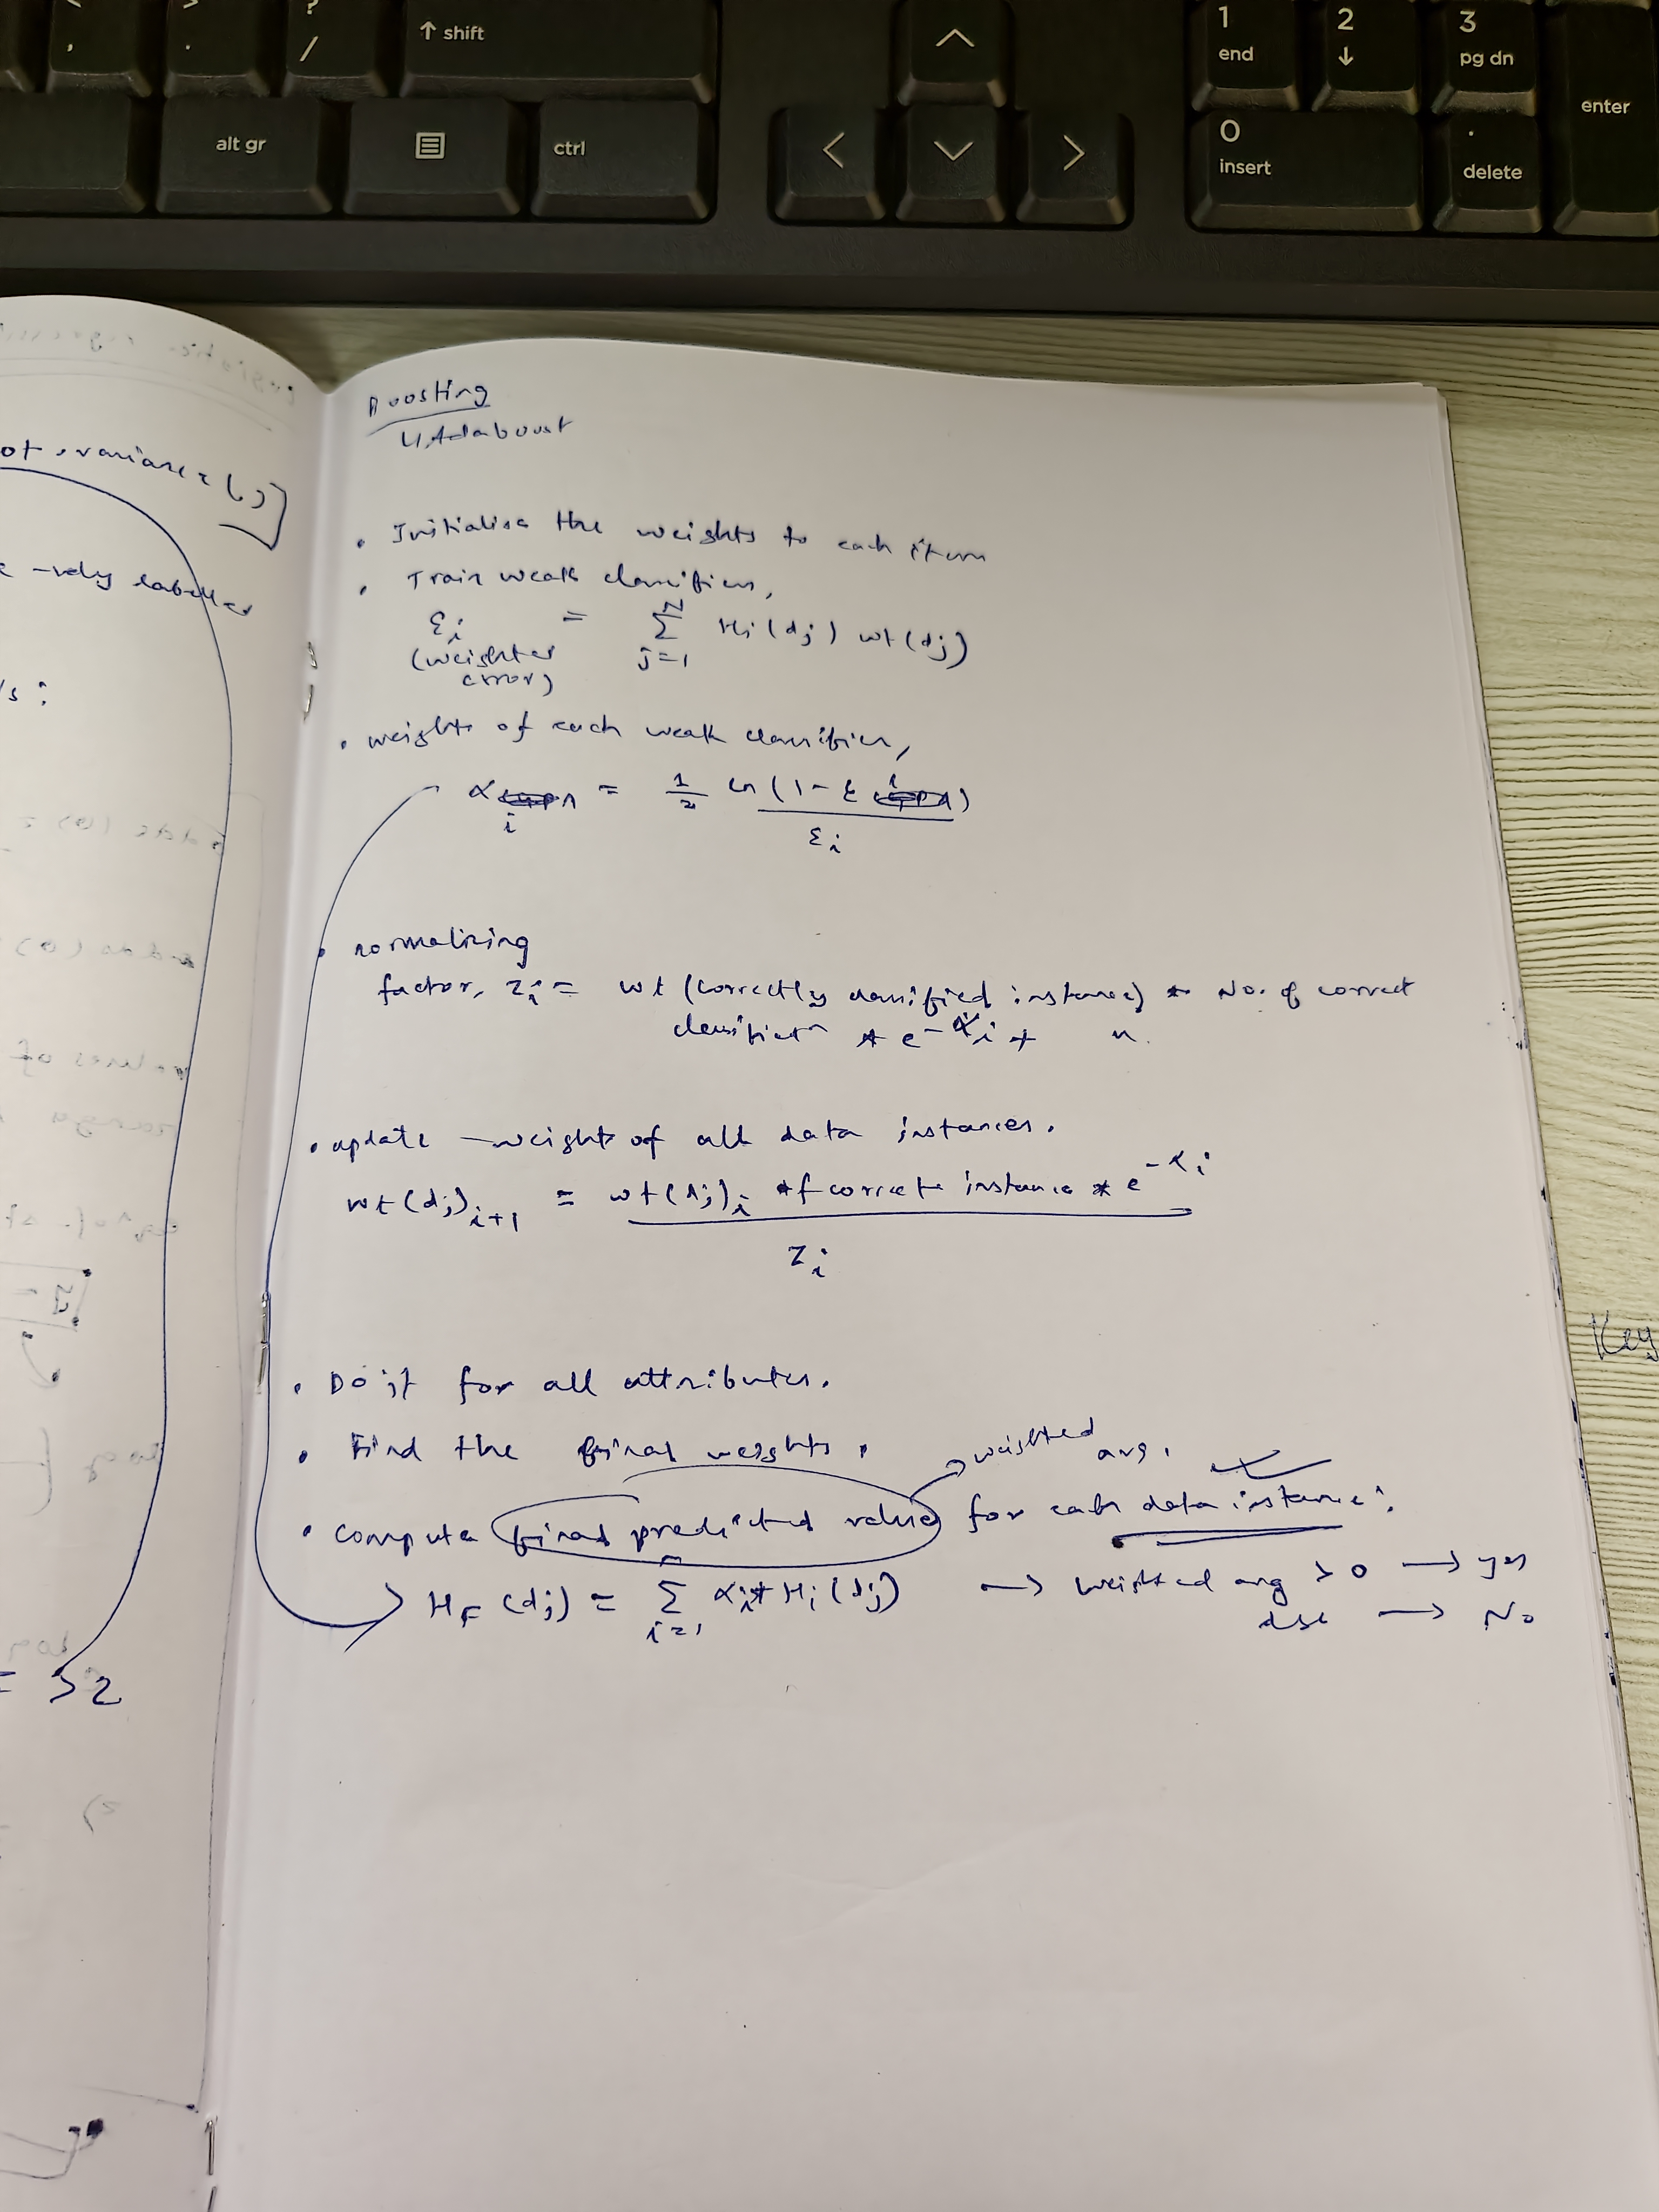 ? /
↑ shift
alt gr
ctrl
1 end
2 ↓
3 pg dn
enter
0 insert
. delete
ot, variance
-vely labelled
= 52
Boosting
↳ Adaboost
• Initialise the weights to each item
• Train weak classifiers,
εi = N Σ j=1 Hi(dj) wt(dj)
(weighted error)
• weights of each weak classifier,
αi = 1/2 ln (1 - εi) / εi
• normalizing
factor, Zi = wt (correctly classified instance) * No. of correct
classifier * e^-αi + "
• update weight of all data instances.
wt(dj)i+1 = wt(dj)i of correct instance * e^-αi
Zi
• Do it for all attributes.
• Find the final weights.
→ weighted avg.
• compute final predicted value for each data instance:
HF (dj) = Σ i=1 αi * Hi(dj) → weighted avg > 0 → yes
else → No
Key